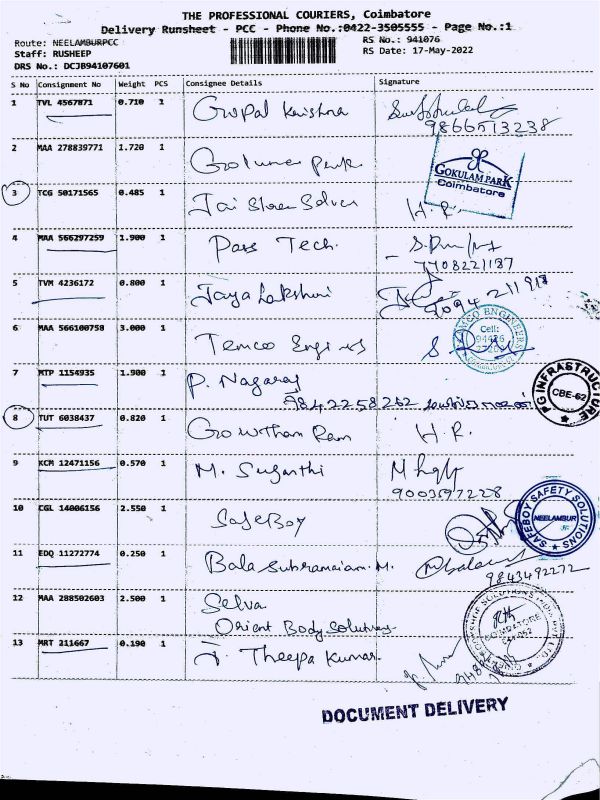 THE PROFESSIONAL COURIERS, Coimbatore
Delivery Runsheet - PCC - Phone No.:0422-3505555 - Page No.:1
Route: NEELAMBURPCC RS No.: 941076
Staff: RUSHEEP RS Date: 17-May-2022
DRS No.: DCJB94107601
S No Consignment No Weight PCS Consignee Details Signature
1 TVL 4567871 0.710 1 Gopal Krishna
9866513238
2 MAA 278839771 1.720 1 Park
GOKULAM PARK
Coimbatore
3 TCG 50171565 0.485 1 Jai Shree H.R.
4 MAA 566297259 1.900 1 Pass Tech.
7708221187
5 TVM 4236172 0.800 1 Jaya Lakshmi
9094 211917
6 MAA 566100758 3.000 1 Temco
TEMCO ENGINEERS
Cell:
7 MTP 1154935 1.900 1 P. Nagaraj
9842258262
PG INFRASTRUCTURE
CBE-62
8 TUT 6038437 0.820 1 Gowtham Ram H.R.
9 KCM 12471156 0.570 1 M. Suganthi
9003597228
10 CGL 14006156 2.550 1 SafeBoy
SAFEBOY SAFETY SOLUTIONS
NEELAMBUR
11 EDQ 11272774 0.250 1 Bala Subramaiam. M. Balan
9843492272
12 MAA 288502603 2.500 1 Selva
Orient Body Solutions
COIMBATORE
13 MRT 211667 0.190 1 J. Theepa Kumar.
DOCUMENT DELIVERY